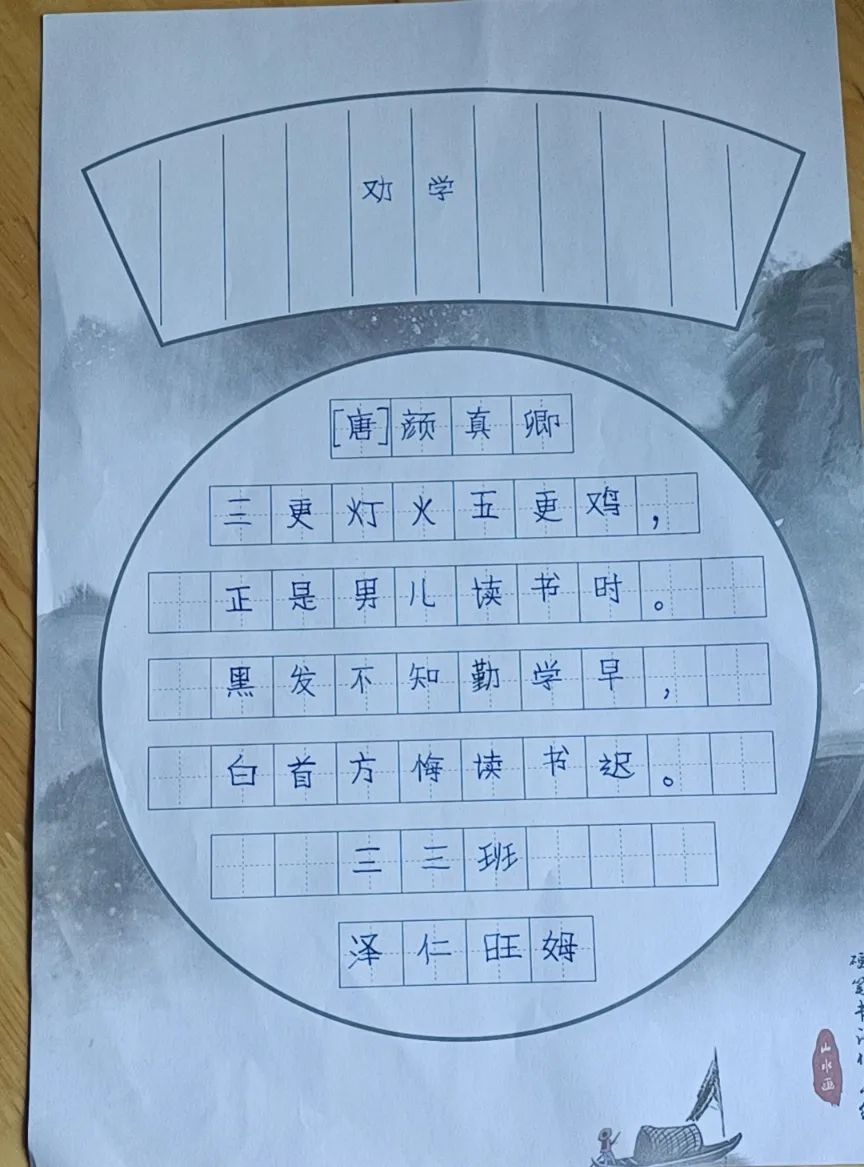 劝学
[唐]颜真卿
三更灯火五更鸡，
正是男儿读书时。
黑发不知勤学早，
白首方悔读书迟。
三三班
泽仁旺姆
山水画